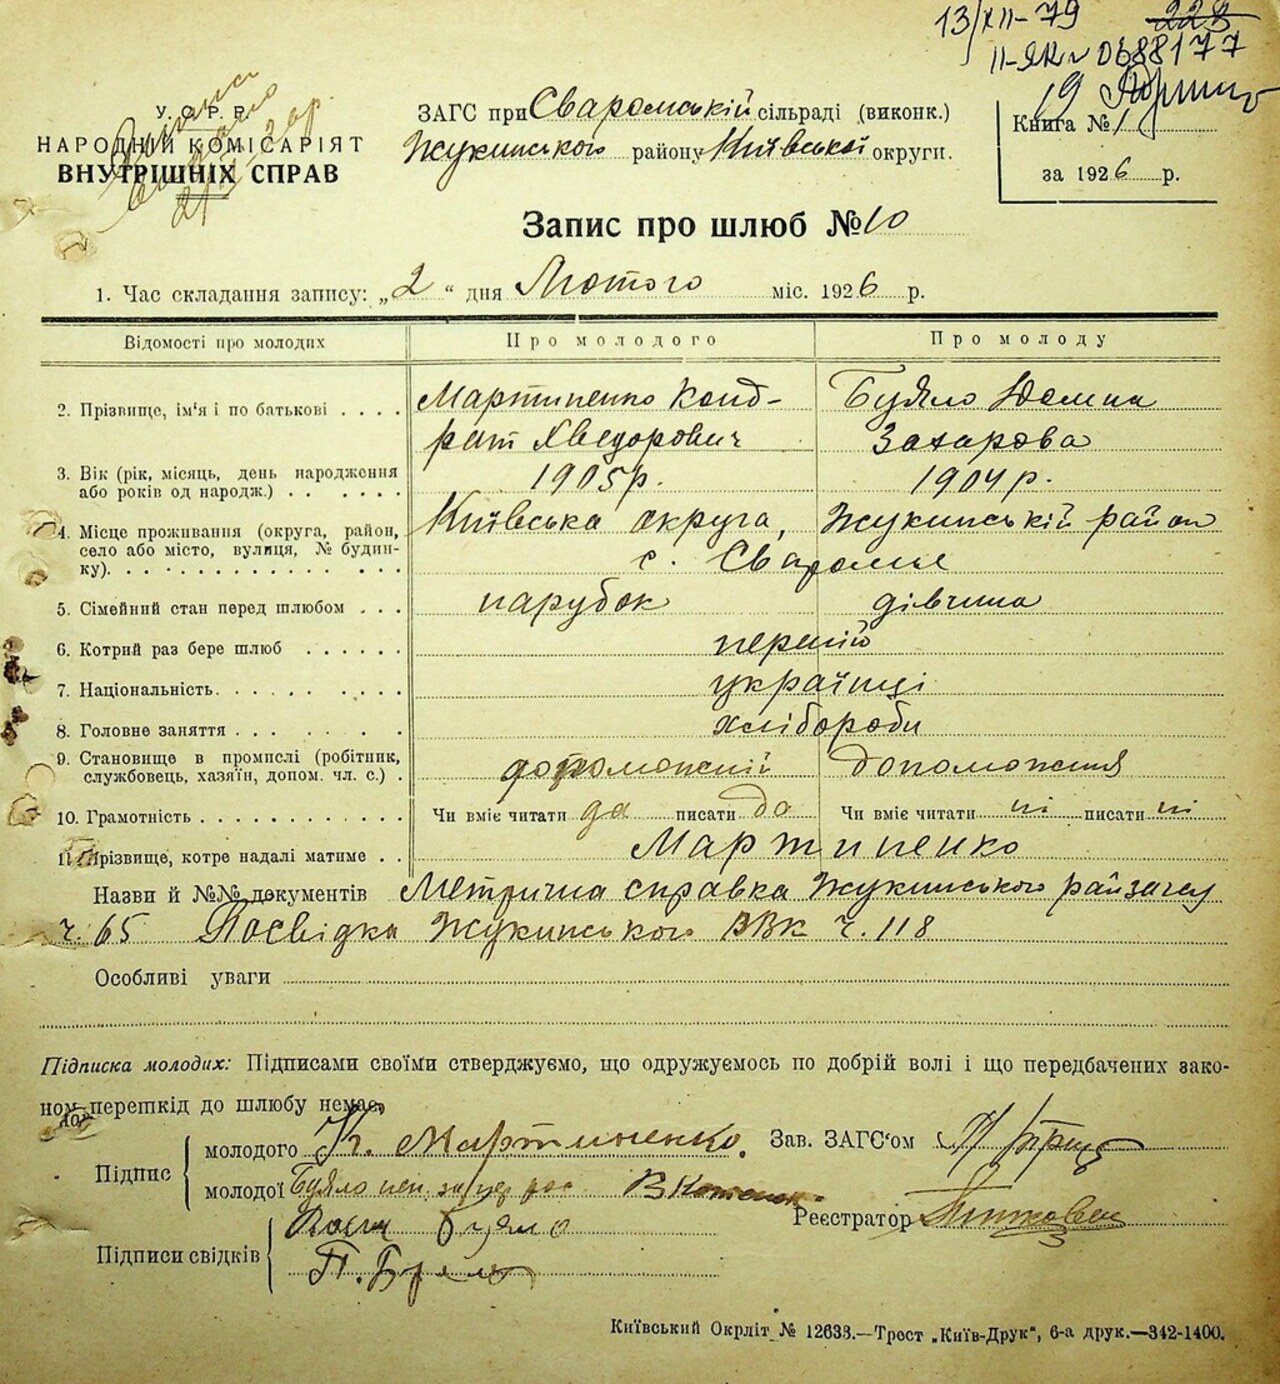 13/XII-79 223
II-ЯК № 0688177
У. С. Р. Р.
НАРОДНІЙ КОМІСАРІЯТ
ВНУТРІШНІХ СПРАВ
ЗАГС при Сваромській сільраді (виконк.)
Жукинського району Київської округи.
Книга № 1
за 1926 р.
Запис про шлюб № 10
1. Час складання запису: „2“ дня Лютого міс. 1926 р.
Відомості про молодих Про молодого Про молоду
2. Прізвище, ім'я і по батькові . . . . Мартиненко Конд- Буяло Домна
рат Хведорович Захарова
3. Вік (рік, місяць, день народження 1905 р. 1904 р.
або років од народж.) . . . . . .
4. Місце проживання (округа, район, Київська округа, Жукинській район
село або місто, вулиця, № будин- с. Сваромьє
ку). . . . . . . . . . . . . . .
5. Сімейний стан перед шлюбом . . . парубок дівчина
6. Котрий раз бере шлюб . . . . . . первій
7. Національність. . . . . . . . . українці
8. Головне заняття . . . . . . . хлібороби
9. Становище в промислі (робітник, допоможний допоможния
службовець, хазяїн, допом. чл. с.) .
10. Грамотність . . . . . . . . . . . . Чи вміє читати да писати да Чи вміє читати ні писати ні
11. Прізвище, котре надалі матиме . . Мартиненко
Назви й №№ документів Метрична справка Жукинського райзагсу
ч. 65 Посвідка Жукинського РВК ч. 118
Особливі уваги
Підписка молодих: Підписами своїми стверджуємо, що одружуємось по добрій волі і що передбачених зако-
ном перешкід до шлюбу немає.
Підпис молодого К. Мартиненко. Зав. ЗАГС'ом
молодої Буяло
Реєстратор
Підписи свідків Буяло
П. Буяло
Київський Окрліт № 12633.—Трест „Київ-Друк“, 6-а друк.—342-1400.